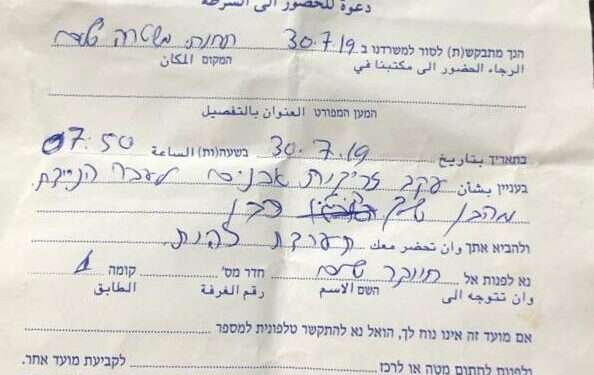 دعوة للحضور الى الشرطة
הנך מתבקש(ת) לסור למשרדנו ב 30.7.19 תחנת: משטרה שלם
الرجاء الحضور الى مكتبنا في המקום المكان
המען המפורט العنوان بالتفصيل
בתאריך بتاريخ 30.7.19 בשעה(ות) الساعة 07:50
בעניין بشأن עקב זריקות אבנים לעבר הניידת
מהבן שלך בן
ולהביא אתך وان تحضر معك תעודת זהות.
נא לפנות אל חוקר שלם חדר מס' קומה 1
وان تتوجه الى השם الاسم رقم الغرفة الطابق
אם מועד זה אינו נוח לך, הואל נא להתקשר טלפונית למספר
ולפנות לחתום מטה או לרכז לקביעת מועד אחר.